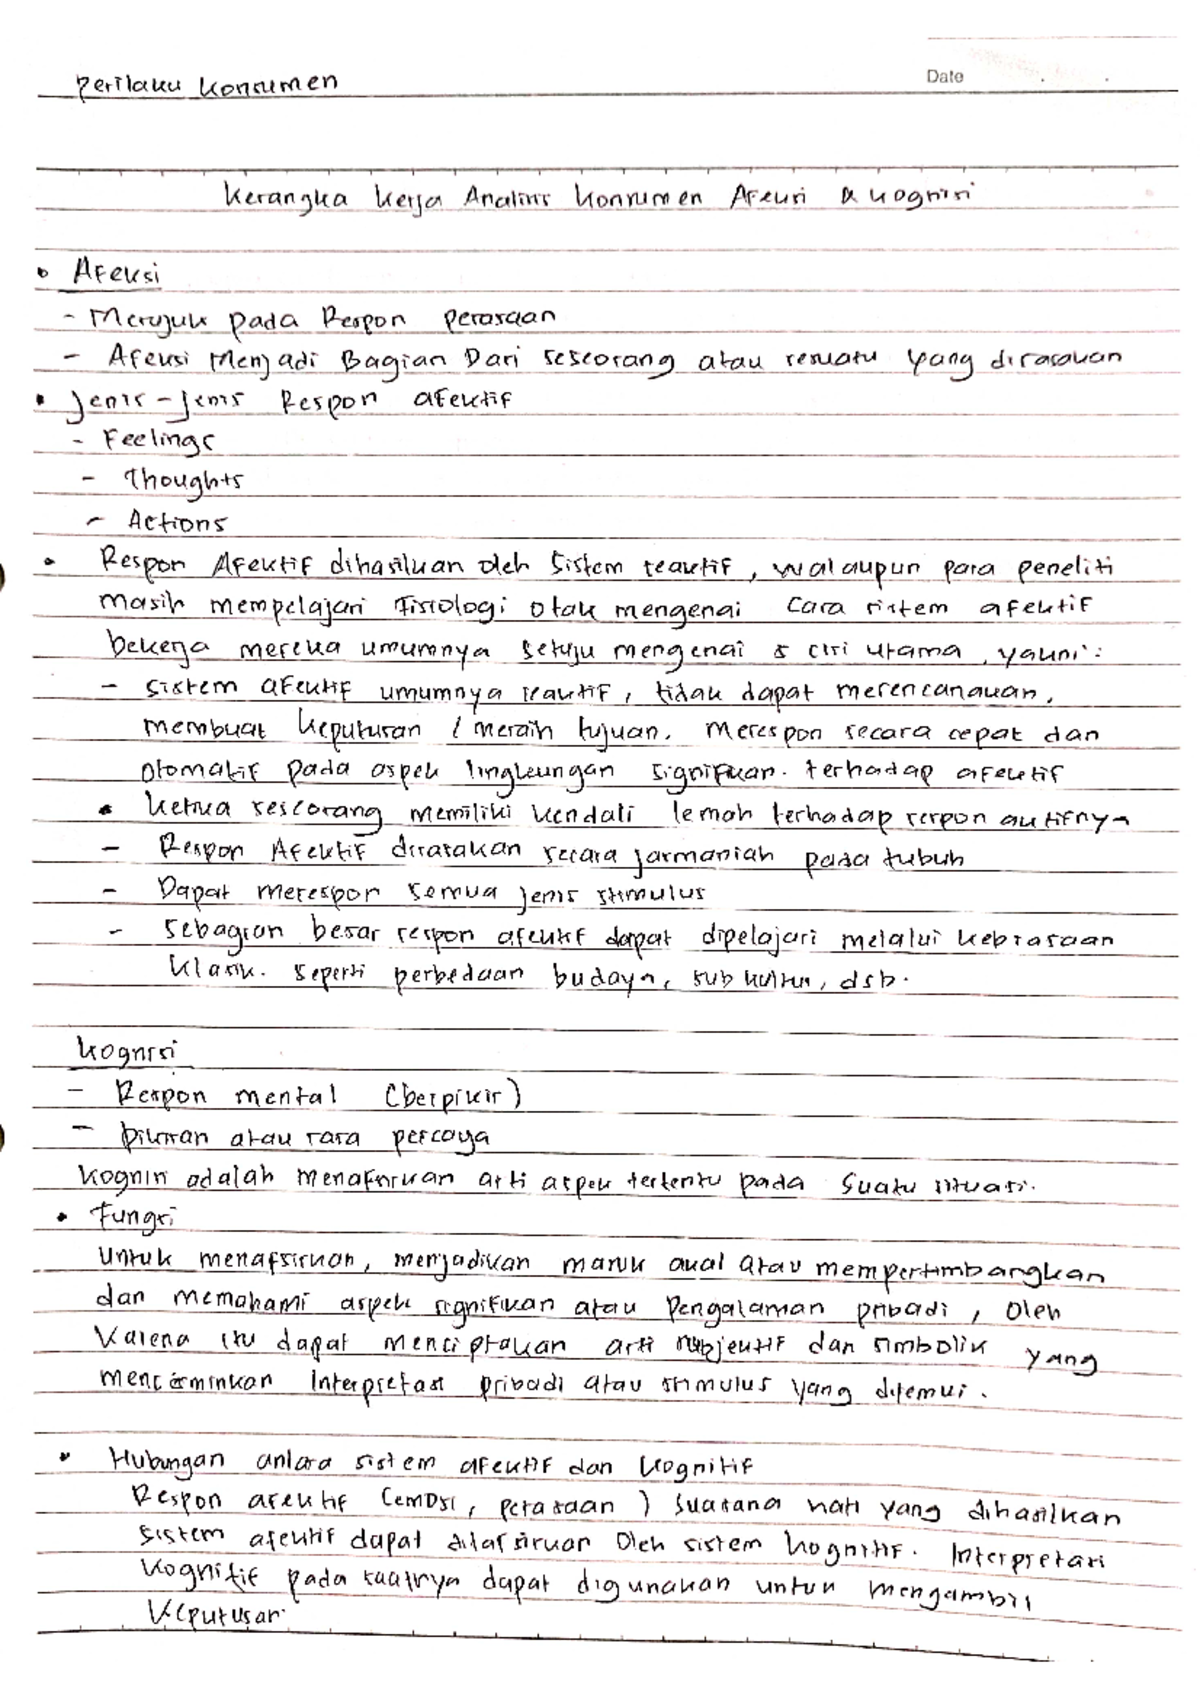 Perilaku Konsumen
Date
Kerangka Kerja Analisis Konsumen Afeksi & Kognisi
• Afeksi
- Merujuk pada Respon perasaan
- Afeksi Menjadi Bagian Dari seseorang atau sesuatu yang dirasakan
• Jenis-Jenis Respon afektif
- Feelings
- Thoughts
- Actions
• Respon Afektif dihasilkan oleh Sistem reaktif, walaupun para peneliti
masih mempelajari Fisiologi Otak mengenai Cara sistem afektif
bekerja mereka umumnya setuju mengenai 5 ciri utama, yakni:
- Sistem afektif umumnya reaktif, tidak dapat merencanakan,
membuat keputusan / meraih tujuan. Merespon secara cepat dan
otomatif pada aspek lingkungan signifikan. terhadap afektif
• Ketika seseorang memiliki kendali lemah terhadap respon aktifnya
- Respon Afektif dirasakan secara jasmaniah pada tubuh
- Dapat merespon semua jenis stimulus
- Sebagian besar respon afektif dapat dipelajari melalui kebiasaan
Klasik. Seperti perbedaan budaya, sub kultur, dsb.
Kognisi
- Respon mental (berpikir)
- pikiran atau rasa percaya
Kognisi adalah menafsirkan arti aspek tertentu pada suatu situasi.
• Fungsi
Untuk menafsirkan, menjadikan masuk akal atau mempertimbangkan
dan memahami aspek signifikan atau Pengalaman pribadi, Oleh
Karena itu dapat menciptakan arti subjektif dan simbolik yang
mencerminkan Interpretasi pribadi atau stimulus yang ditemui.
• Hubungan antara sistem afektif dan Kognitif
Respon afektif (emosi, perasaan) Suasana hati yang dihasilkan
Sistem afektif dapat ditafsirkan Oleh sistem kognitif. Interpretasi
Kognitif pada saatnya dapat digunakan untuk mengambil
Keputusan